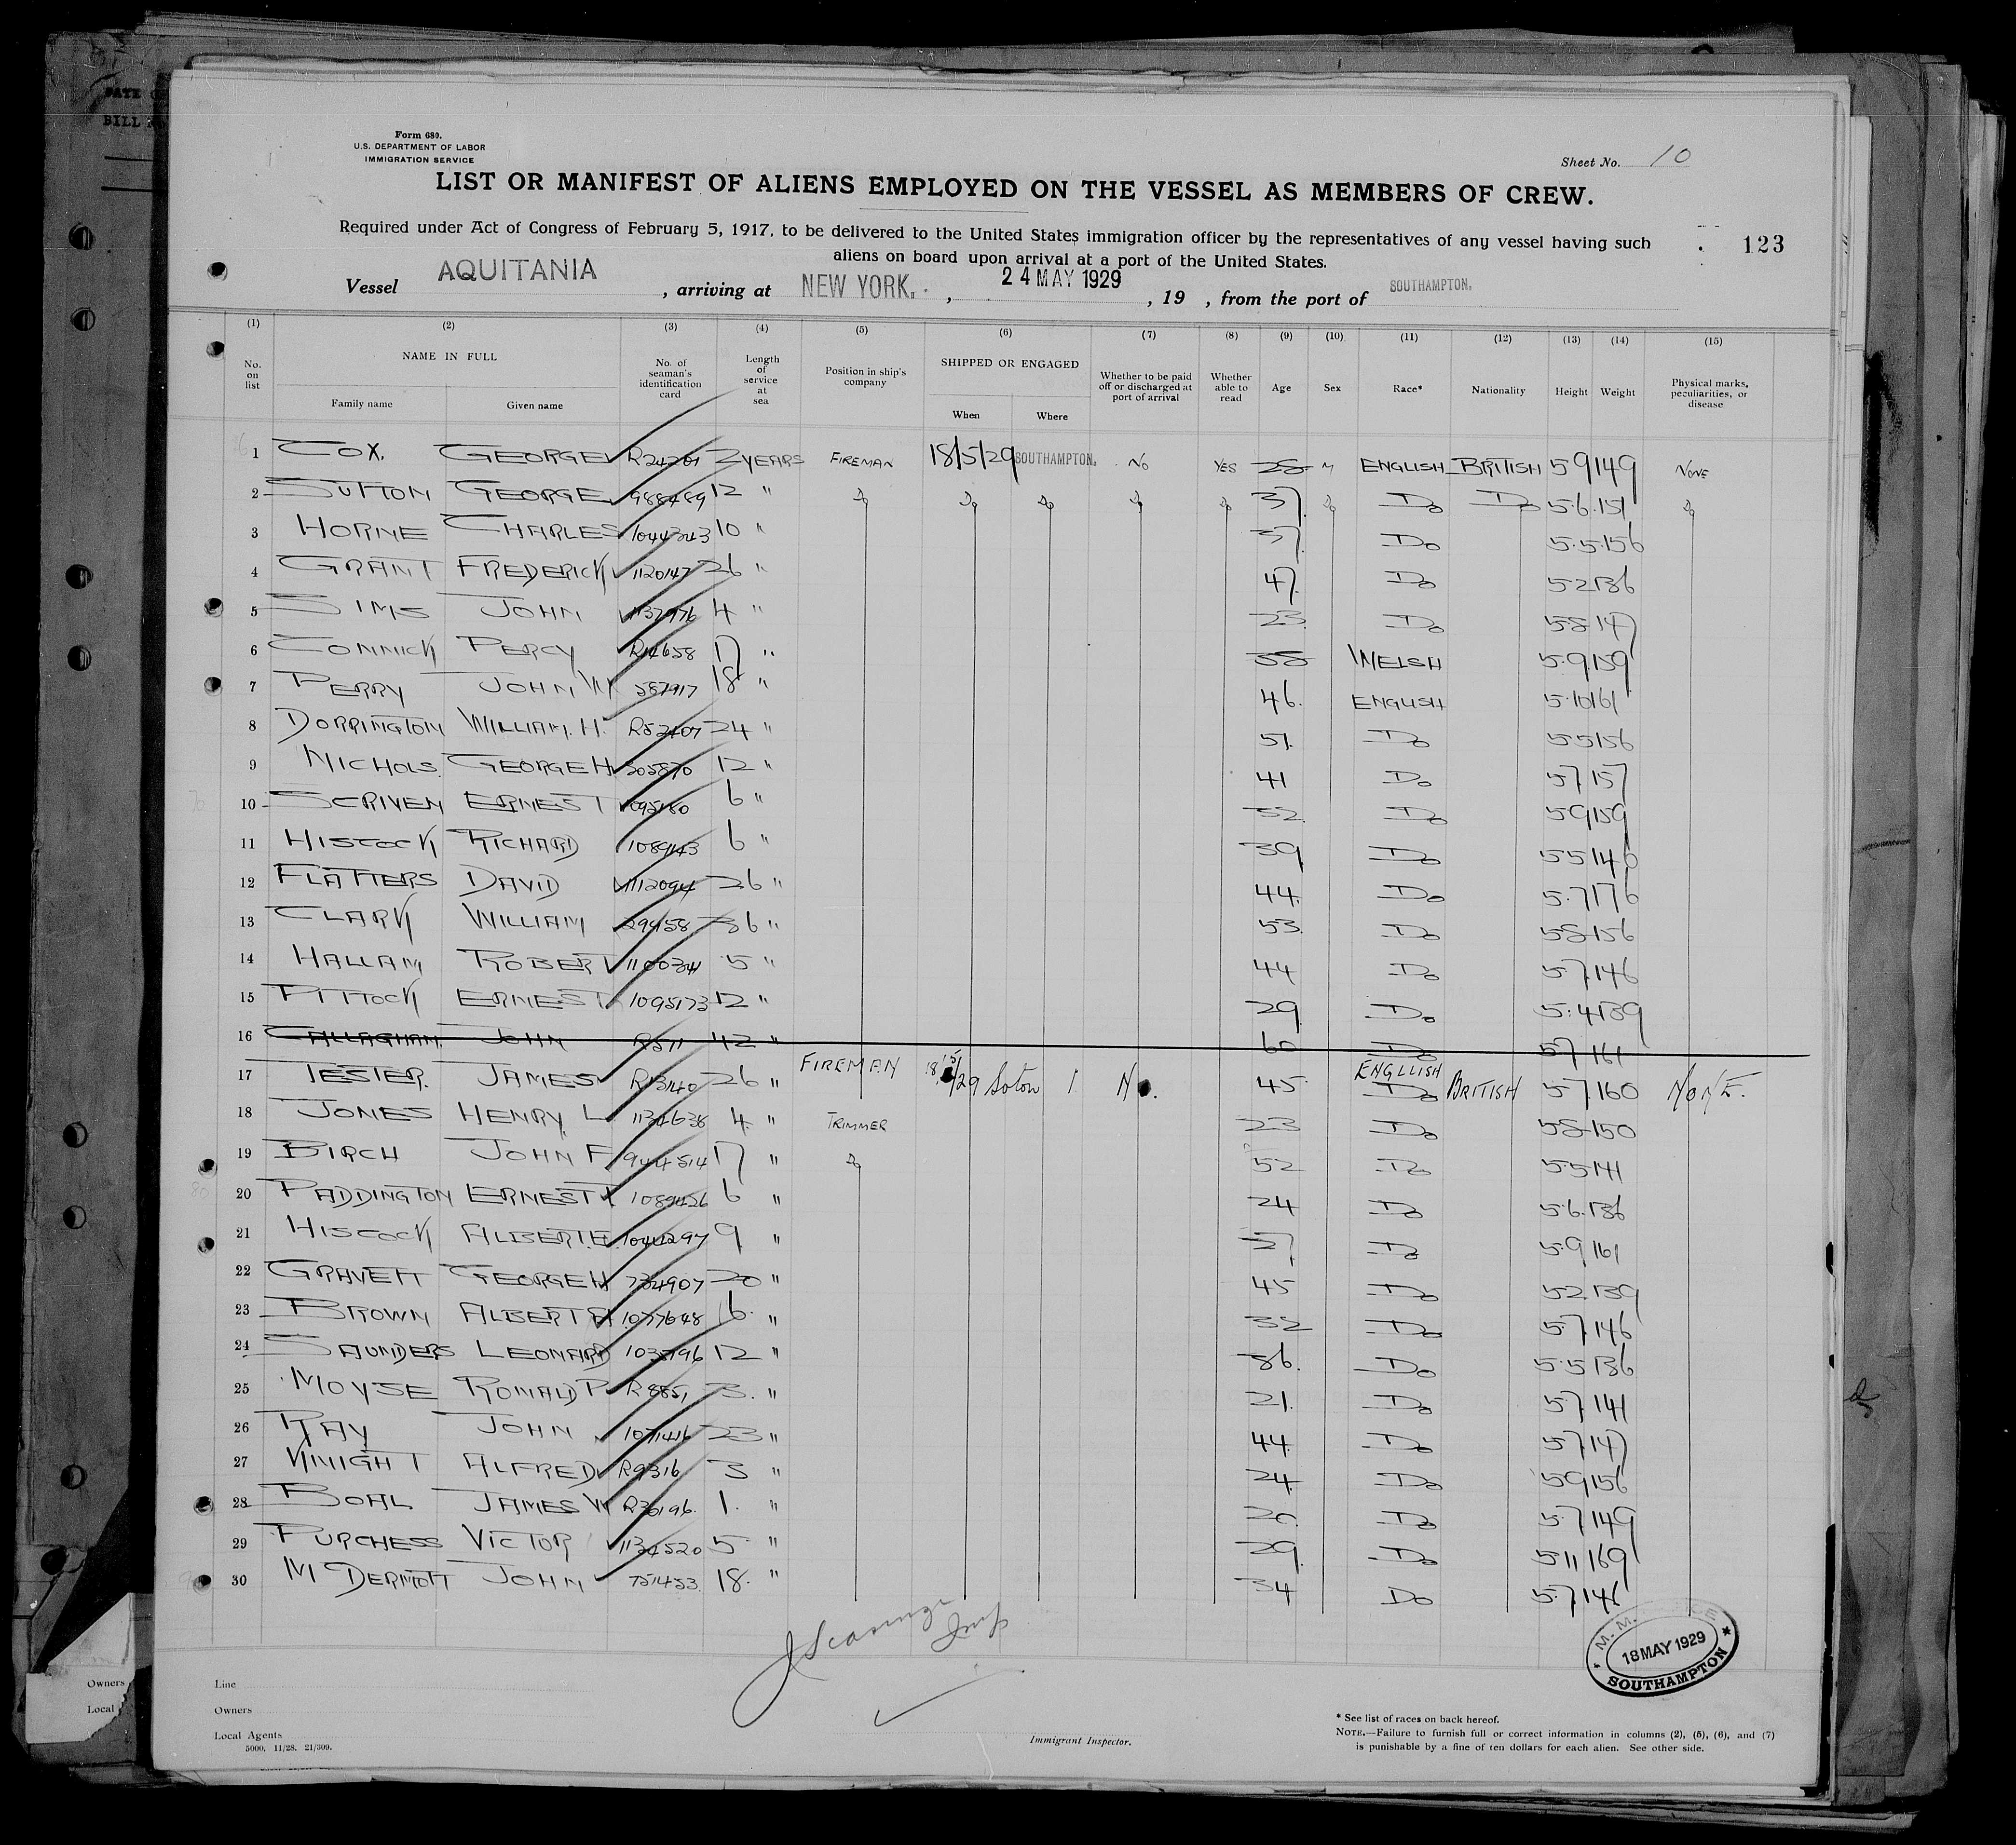 DATE O
BILL
Form 680.
U.S. DEPARTMENT OF LABOR
IMMIGRATION SERVICE
Sheet No. 10
LIST OR MANIFEST OF ALIENS EMPLOYED ON THE VESSEL AS MEMBERS OF CREW.
Required under Act of Congress of February 5, 1917, to be delivered to the United States immigration officer by the representatives of any vessel having such
aliens on board upon arrival at a port of the United States.
123
Vessel AQUITANIA, arriving at NEW YORK., 24 MAY 1929, 19 , from the port of SOUTHAMPTON.
(1) (2) (3) (4) (5) (6) (7) (8) (9) (10) (11) (12) (13) (14) (15)
No. on list NAME IN FULL Family name Given name No. of seaman's identification card Length of service at sea Position in ship's company SHIPPED OR ENGAGED When Where Whether to be paid off or discharged at port of arrival Whether able to read Age Sex Race* Nationality Height Weight Physical marks, peculiarities, or disease
1 COX. GEORGE R24201 2 YEARS FIREMAN 18/5/29 SOUTHAMPTON. NO YES 28 M ENGLISH BRITISH 5 9 149 NONE
2 SUTTON GEORGE 988489 12 " Do Do Do Do Do 37 Do Do Do 5.6 151 Do
3 HORNE CHARLES 1044343 10 " 37 Do 5.5 156
4 GRANT FREDERICK 1120147 26 " 47 Do 5 2 136
5 SIMS JOHN 1137976 4 " 23 Do 5 8 147
6 CONNICK PERCY R14658 17 " 38 WELSH 5.9 159
7 PERRY JOHN W 587917 18 " 46. ENGLISH 5.10 161
8 DORRINGTON WILLIAM. H. R52407 24 " 51. Do 5 5 156
9 NICHOLS. GEORGE H 305870 12 " 41 Do 5 7 157
10 SCRIVEN ERNEST 1095180 6 " 32 Do 5 9 159
11 HISCOCK RICHARD 1089143 6 " 39 Do 5 5 146
12 FLATTERS DAVID 1112094 26 " 44. Do 5.7 176
13 CLARK WILLIAM 29458 36 " 53 Do 5 8 156
14 HALLAM ROBERT 1100341 5 " 44 Do 5 7 146
15 PITTOCK ERNEST 1095173 12 " 29 Do 5.4 139
16 CALLAGHAN. JOHN R511 42 " 60 Do 5 7 161
17 TESTER. JAMES R13140 26 " FIREMAN 18/5/29 Soton 1 No. 45 ENGLLISH Do BRITISH 5 7 160 NONE.
18 JONES HENRY L 1134638 4 " TRIMMER 23 Do 5 8 150
19 BIRCH JOHN F 944514 17 " Do 52 Do 5.5 141
20 PADDINGTON ERNEST 1089426 6 " 24 Do 5.6 136
21 HISCOCK ALBERT.E. 1044297 9 " 37 Do 5.9 161
22 GRAVETT GEORGE H 734907 20 " 45 Do 5 2 139
23 BROWN ALBERT A 1077648 6 " 32 Do 5.7 146
24 SAUNDERS LEONARD 1038196 12 " 36. Do 5.5 136
25 MOYSE RONALD P R8851 3. " 21. Do 5.7 141
26 RAY JOHN 1071416 23 " 44. Do 5.7 147
27 KNIGHT ALFRED R9316 3 " 24 Do 5 9 156
28 BOAL JAMES W R30196. 1. " 20 Do 5.7 149
29 PURCHESS VICTOR 1134520 5 " 29. Do 5 11 169
30 McDERMOTT JOHN 751453 18. " 34 Do 5.7 146
Insp
M.M.
18 MAY 1929
SOUTHAMPTON
Owners
Local
Line
Owners
Local Agents
5000. 11/28. 21/309.
Immigrant Inspector.
* See list of races on back hereof.
NOTE.—Failure to furnish full or correct information in columns (2), (5), (6), and (7)
is punishable by a fine of ten dollars for each alien. See other side.